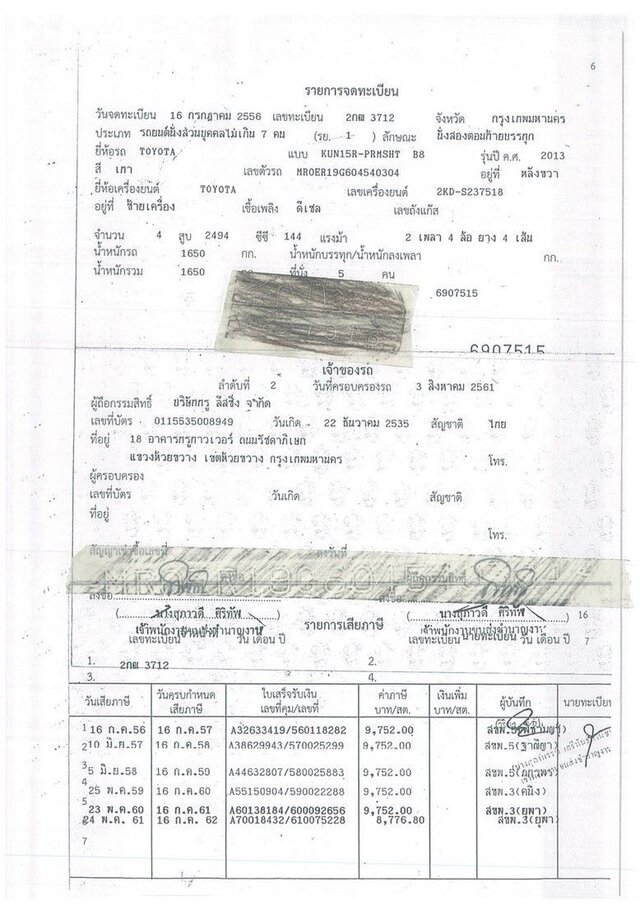 6
รายการจดทะเบียน
วันจดทะเบียน 16 กรกฎาคม 2556 เลขทะเบียน 2กผ 3712 จังหวัด กรุงเทพมหานคร
ประเภท รถยนต์นั่งส่วนบุคคลไม่เกิน 7 คน (รย. 1 ) ลักษณะ นั่งสองตอนท้ายบรรทุก
ยี่ห้อรถ TOYOTA แบบ KUN15R-PRMSHT B8 รุ่นปี ค.ศ. 2013
สี เทา เลขตัวรถ MROER19G604540304 อยู่ที่ หลังขวา
ยี่ห้อเครื่องยนต์ TOYOTA เลขเครื่องยนต์ 2KD-S237518
อยู่ที่ ซ้ายเครื่อง เชื้อเพลิง ดีเซล เลขถังแก๊ส
จำนวน 4 สูบ 2494 ซีซี 144 แรงม้า 2 เพลา 4 ล้อ ยาง 4 เส้น
น้ำหนักรถ 1650 กก. น้ำหนักบรรทุก/น้ำหนักลงเพลา กก.
น้ำหนักรวม 1650 ที่นั่ง 5 คน
6907515
6907515
เจ้าของรถ
ลำดับที่ 2 วันที่ครอบครองรถ 3 สิงหาคม 2561
ผู้ถือกรรมสิทธิ์ บริษัทกรู ลีสซิ่ง จำกัด
เลขที่บัตร 0115535008949 วันเกิด 22 ธันวาคม 2535 สัญชาติ ไทย
ที่อยู่ 18 อาคารทรูทาวเวอร์ ถนนรัชดาภิเษก
แขวงห้วยขวาง เขตห้วยขวาง กรุงเทพมหานคร โทร.
ผู้ครอบครอง
เลขที่บัตร วันเกิด สัญชาติ
ที่อยู่
โทร.
สัญญาเช่าซื้อเลขที่ ลงวันที่
ลงชื่อ ผู้ถือกรรมสิทธิ์
ลงชื่อ ลงชื่อ
( นางสุภาวดี ศิริทัพ ) ( นางสุภาวดี ศิริทัพ ) 16
เจ้าพนักงานขนส่งชำนาญงาน รายการเสียภาษี เจ้าพนักงานขนส่งชำนาญงาน
เลขทะเบียน วัน เดือน ปี เลขทะเบียน นายทะเบียน วัน เดือน ปี 7
1. 2กผ 3712 2.
3. 4.
วันเสียภาษี วันครบกำหนดเสียภาษี ใบเสร็จรับเงิน เลขที่คุม/เลขที่ ค่าภาษี บาท/สต. เงินเพิ่ม บาท/สต. ผู้บันทึก นายทะเบียน
1 16 ก.ค.56 16 ก.ค.57 A32633419/560118282 9,752.00
2 10 มิ.ย.57 16 ก.ค.58 A38629943/570025299 9,752.00 สขพ.5(ฐาณิญา)
3 5 มิ.ย.58 16 ก.ค.59 A44632807/580025883 9,752.00
4 25 พ.ค.59 16 ก.ค.60 A55150904/590022288 9,752.00 สขพ.3(คนึง)
5 23 พ.ค.60 16 ก.ค.61 A60138184/600092656 9,752.00 สขพ.3(ยุพา)
6 24 พ.ค. 61 16 ก.ค. 62 A70018432/610075228 8,776.80 สขพ.3(ยุพา)
7